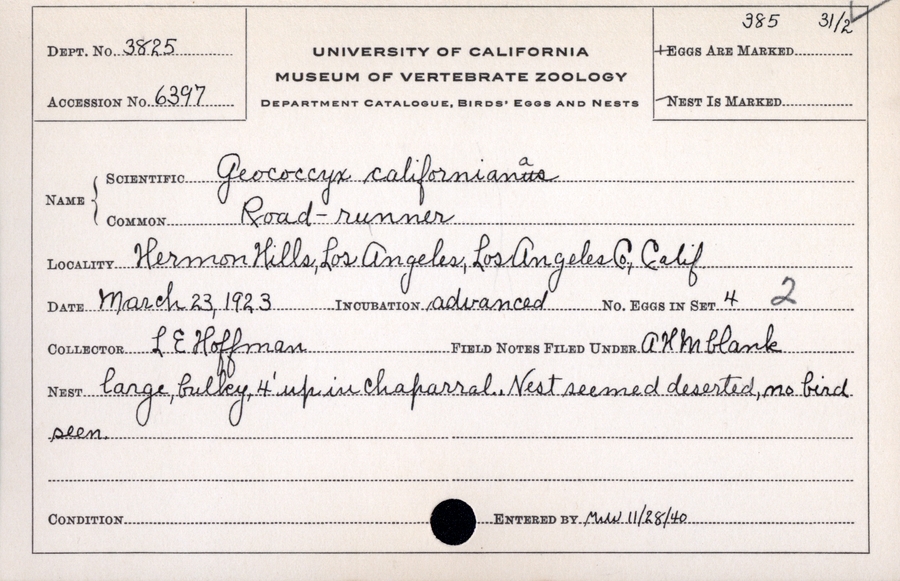 385 31/2
Dept. No. 3825
UNIVERSITY OF CALIFORNIA
+Eggs Are Marked
MUSEUM OF VERTEBRATE ZOOLOGY
Accession No. 6397
Department Catalogue, Birds' Eggs and Nests
Nest Is Marked
Name
Scientific Geococcyx californianus a
Common Road-runner
Locality Hermon Hills, Los Angeles, Los Angeles Co., Calif
Date March 23, 1923 Incubation advanced No. Eggs in Set 4 2
Collector L E Hoffman Field Notes Filed Under A H M blank
Nest large, bulky, 4' up in chaparral. Nest seemed deserted, no bird
seen.
Condition Entered by 11/28/40